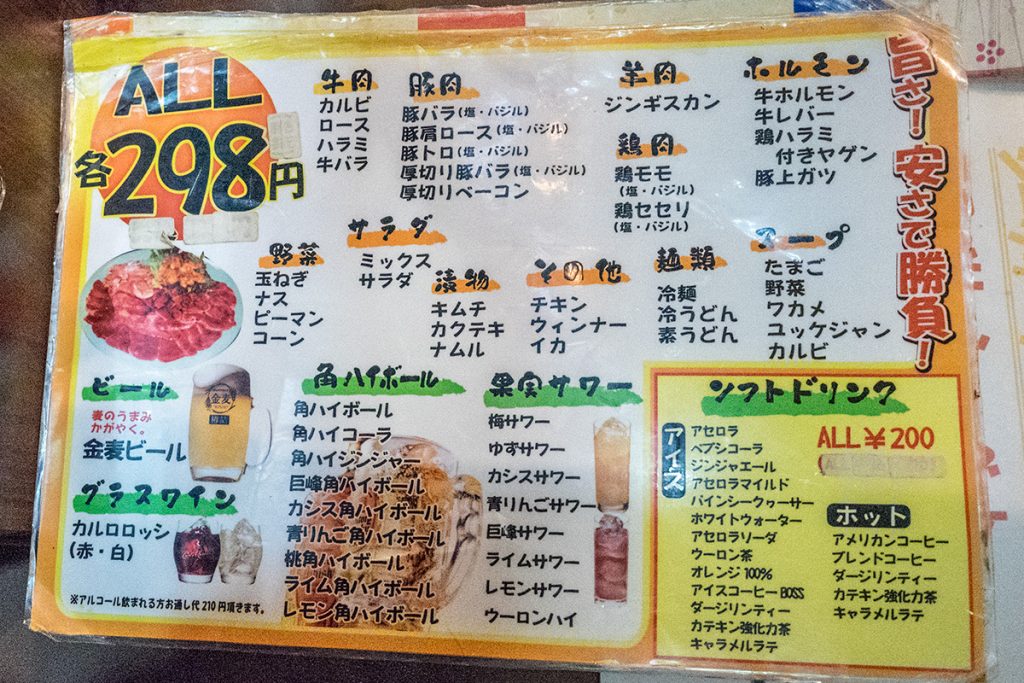 ALL
各298円
牛肉
カルビ
ロース
ハラミ
牛バラ
豚肉
豚バラ(塩・バジル)
豚肩ロース(塩・バジル)
豚トロ(塩・バジル)
厚切り豚バラ(塩・バジル)
厚切りベーコン
羊肉
ジンギスカン
鶏肉
鶏モモ
(塩・バジル)
鶏セセリ
(塩・バジル)
ホルモン
牛ホルモン
牛レバー
鶏ハラミ
付きヤゲン
豚上ガツ
旨さ!安さで勝負!
野菜
玉ねぎ
ナス
ピーマン
コーン
サラダ
ミックス
サラダ
漬物
キムチ
カクテキ
ナムル
その他
チキン
ウィンナー
イカ
麺類
冷麺
冷うどん
素うどん
スープ
たまご
野菜
ワカメ
ユッケジャン
カルビ
ビール
麦のうまみ
かがやく。
金麦ビール
金麦
グラスワイン
カルロロッシ
(赤・白)
※アルコール飲まれる方お通し代210円頂きます。
角ハイボール
角ハイボール
角ハイコーラ
角ハイジンジャー
巨峰角ハイボール
カシス角ハイボール
青りんご角ハイボール
桃角ハイボール
ライム角ハイボール
レモン角ハイボール
果実サワー
梅サワー
ゆずサワー
カシスサワー
青りんごサワー
巨峰サワー
ライムサワー
レモンサワー
ウーロンハイ
ソフトドリンク
ALL¥200
アイス
アセロラ
ペプシコーラ
ジンジャエール
アセロラマイルド
パインシークヮーサー
ホワイトウォーター
アセロラソーダ
ウーロン茶
オレンジ100%
アイスコーヒーBOSS
ダージリンティー
カテキン強化力茶
キャラメルラテ
ホット
アメリカンコーヒー
ブレンドコーヒー
ダージリンティー
カテキン強化力茶
キャラメルラテ